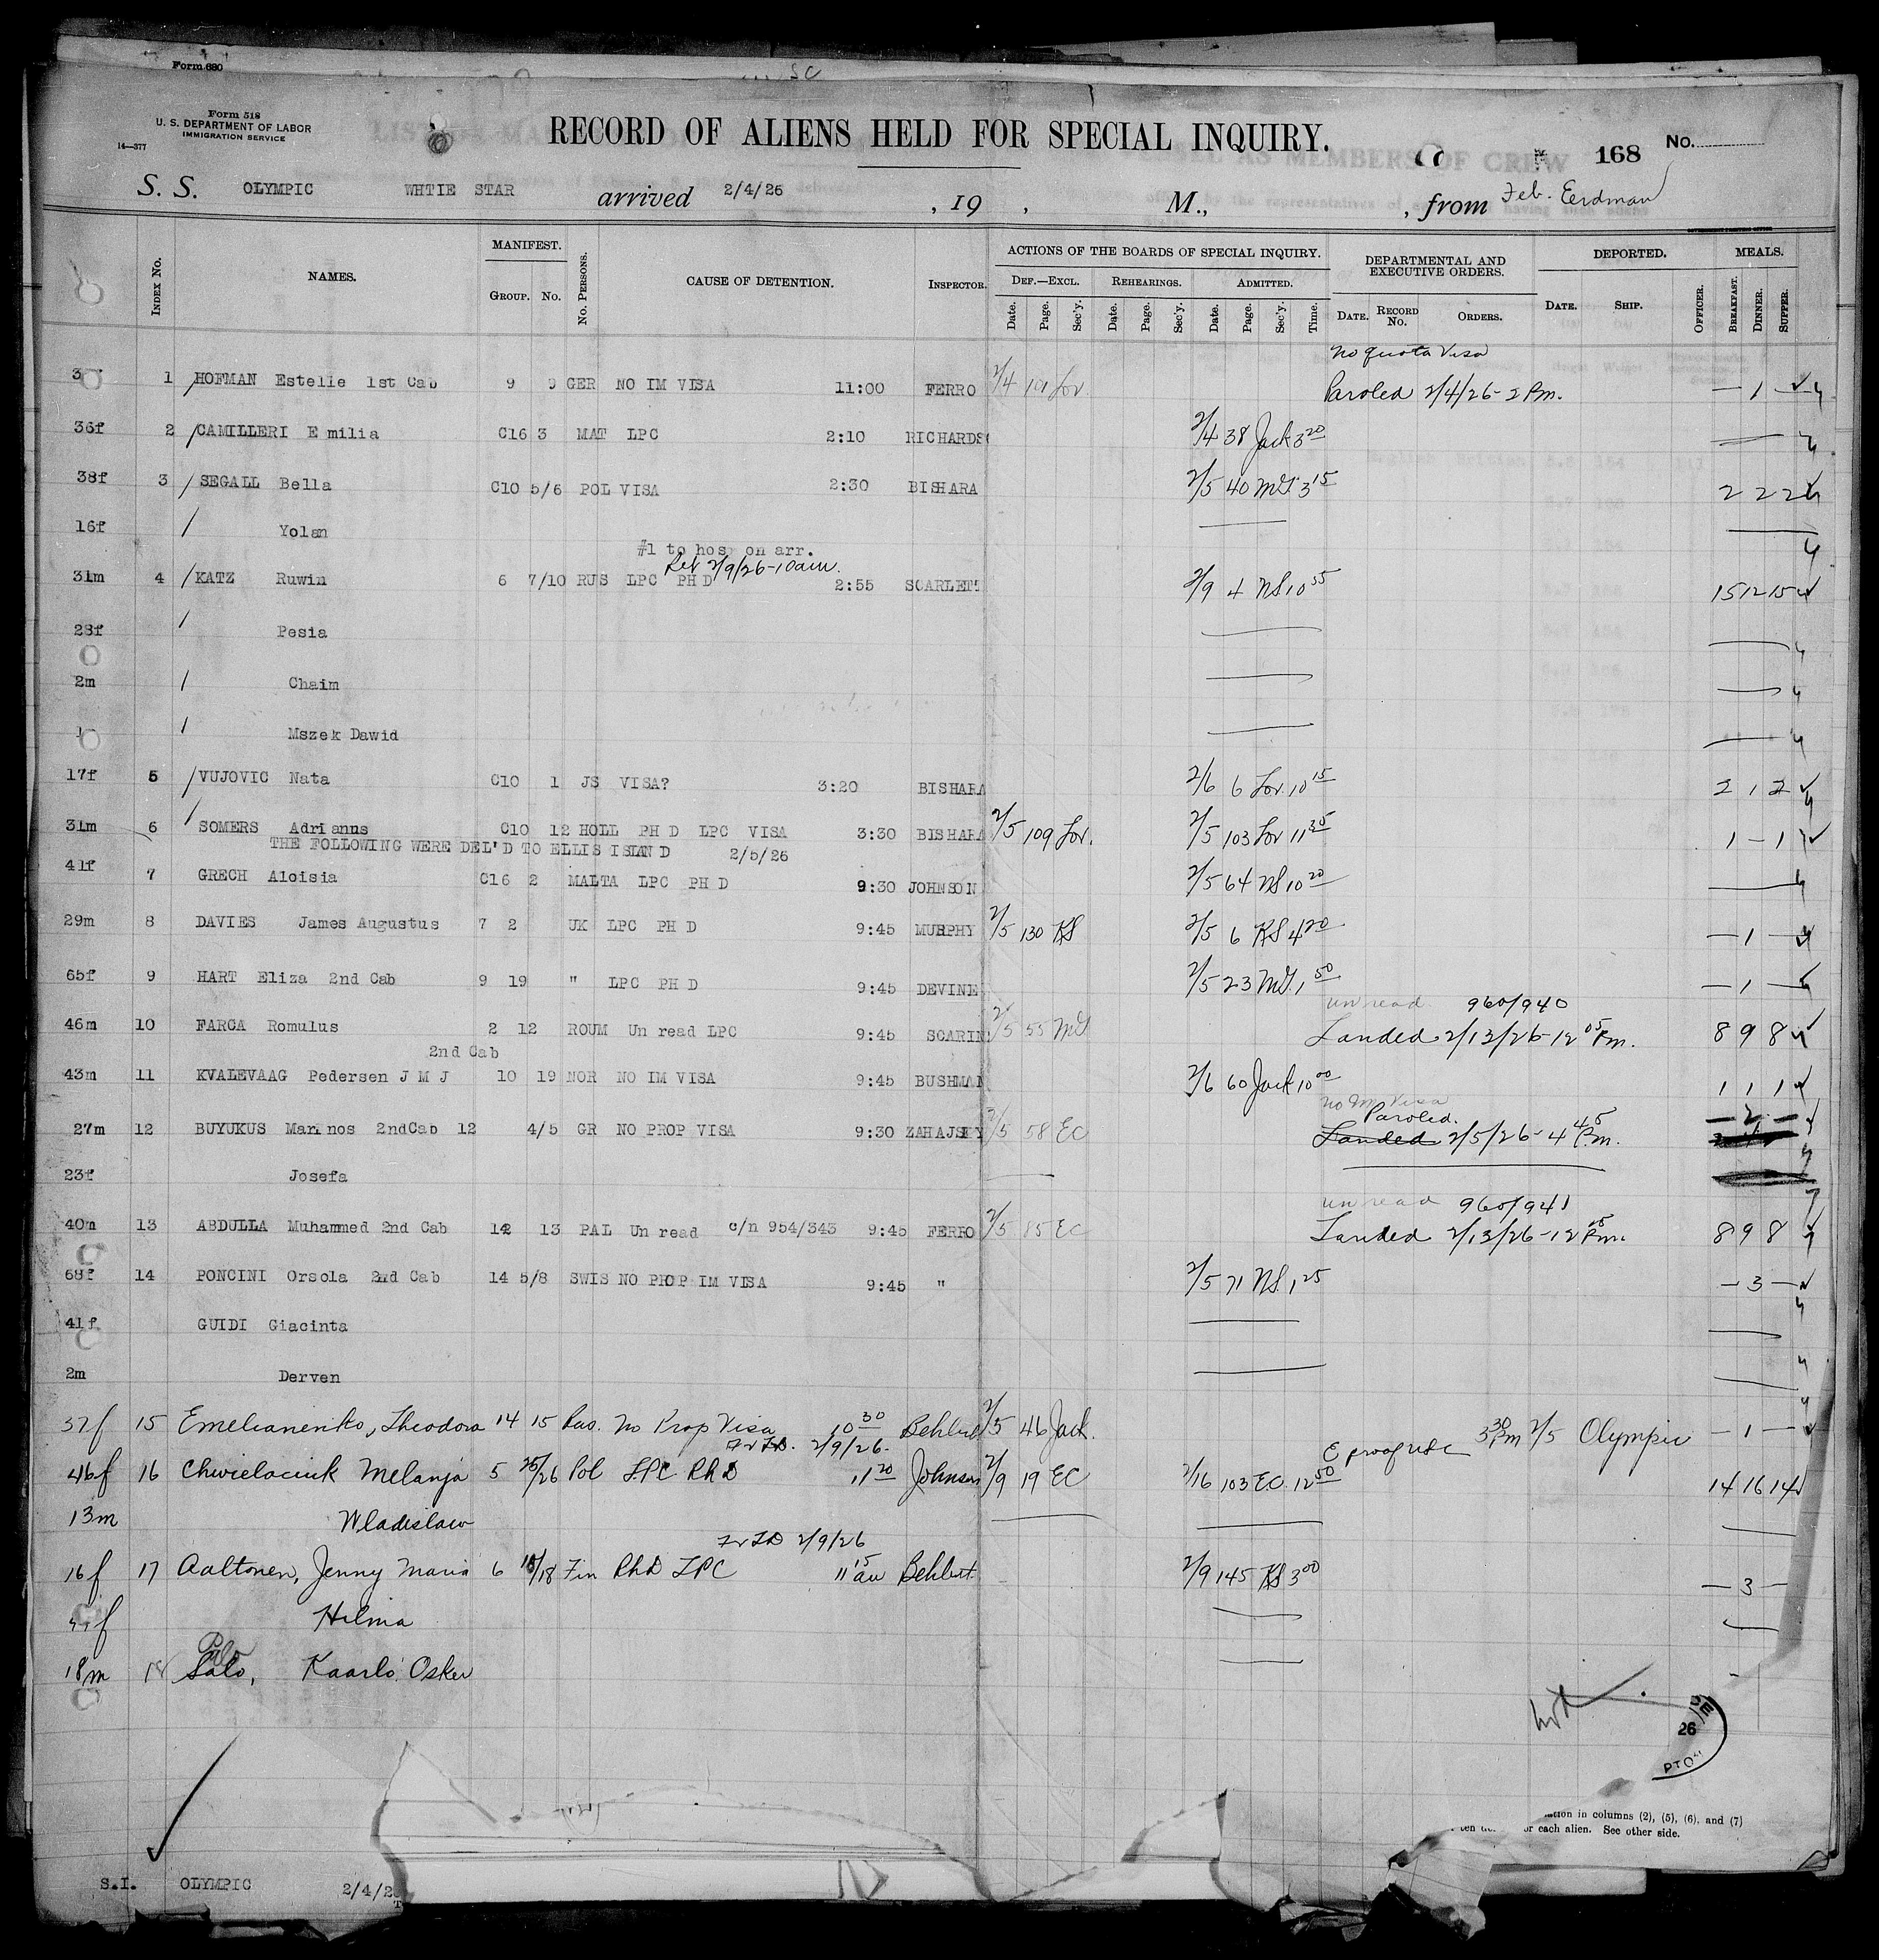 Form 680
Form 518
U. S. DEPARTMENT OF LABOR
IMMIGRATION SERVICE
14—377
RECORD OF ALIENS HELD FOR SPECIAL INQUIRY.
168 No.
S. S. OLYMPIC WHTIE STAR arrived 2/4/26 , 19 , M., , from Feb. Eerdman
INDEX No. NAMES. MANIFEST. GROUP. No. No. PERSONS. CAUSE OF DETENTION. INSPECTOR. ACTIONS OF THE BOARDS OF SPECIAL INQUIRY. DEF.—EXCL. Date. Page. Sec'y. REHEARINGS. Date. Page. Sec'y. ADMITTED. Date. Page. Sec'y. Time. DEPARTMENTAL AND EXECUTIVE ORDERS. DATE. RECORD No. ORDERS. DEPORTED. DATE. SHIP. OFFICER. MEALS. BREAKFAST. DINNER. SUPPER.
no quota Visa
1 HOFMAN Estelle 1st Cab 9 9 GER NO IM VISA 11:00 FERRO 2/4 101 Lov Paroled 2/4/26-2 Pm. — 1 —
36f 2 CAMILLERI E milia C16 3 MAT LPC 2:10 RICHARDS 2/4 38 Jack 3 20
38f 3 SEGALL Bella C10 5/6 POL VISA 2:30 BISHARA 2/5 40 3 15 2 2 2
16f Yolan
#1 to hosp on arr.
2/9/26-10am.
31m 4 KATZ Ruwin 6 7/10 RUS LPC PH D 2:55 SCARLETT 2/9 4 NS 10 55 15 12 15
28f Pesia
2m Chaim
Mszek Dawid
17f 5 VUJOVIC Nata C10 1 JS VISA? 3:20 BISHARA 2/6 6 Lov. 10 15 2 1 2
31m 6 SOMERS Adrianus C10 12 HOLL PH D LPC VISA 3:30 BISHARA 2/5 109 Lov. 2/5 103 Lov 11 35 1 — 1
THE FOLLOWING WERE DEL'D TO ELLIS ISLAND 2/5/26
41f 7 GRECH Aloisia C16 2 MALTA LPC PH D 9:30 JOHNSON 2/5 64 NS 10 20
29m 8 DAVIES James Augustus 7 2 UK LPC PH D 9:45 MURPHY 2/5 130 KS 2/5 6 KS 4 20 — 1 —
65f 9 HART Eliza 2nd Cab 9 19 " LPC PH D 9:45 DEVINE 2/5 23 1 50 — 1 —
un read 960/940
46m 10 FARCA Romulus 2 12 ROUM Un read LPC 9:45 SCARIN 2/5 55 Landed 2/13/26-12 05 Pm. 8 9 8
2nd Cab
43m 11 KVALEVAAG Pedersen J M J 10 19 NOR NO IM VISA 9:45 BUSHMAN 2/6 60 Jack 10 00 1 1 1
no Im Visa
Paroled. — 2 —
27m 12 BUYUKUS Marinos 2ndCab 12 4/5 GR NO PROP VISA 9:30 ZAHAJSKY 2/5 58 EC Landed 2/5/26-4 45 Pm.
23f Josefa
un read 960/941
40m 13 ABDULLA Muhammed 2nd Cab 14 13 PAL Un read c/n 954/343 9:45 FERRO 2/5 85 EC Landed 2/13/26-12 Pm. 8 9 8
68f 14 PONCINI Orsola 2nd Cab 14 5/8 SWIS NO PROP IM VISA 9:45 " 2/5 71 NS. 1 25 — 3 —
41f GUIDI Giacinta
2m Derven
37f 15 Emelianenko, Theodora 14 15 Rus. No Prop Visa 10 30 2/5 46 Jack. 3 30 Pm 2/5 Olympic — 1 —
2/9/26.
46f 16 Chwielaciuk Melanja 5 25/26 Pol LPC PhD 11 20 Johnson 2/9 19 EC 2/16 103 E.C. 12 50 14 16 14
13m Wladislaw
2/9/26
16f 17 Aaltonen, Jenny Maria 6 18 Fin PhD LPC 11 15 am 2/9 145 KS 3 00 — 3 —
f Hilma
18m 18 Salo, Kaarlo Osker
26
PTO
columns (2), (5), (6), and (7)
each alien. See other side.
S.I. OLYMPIC 2/4/2